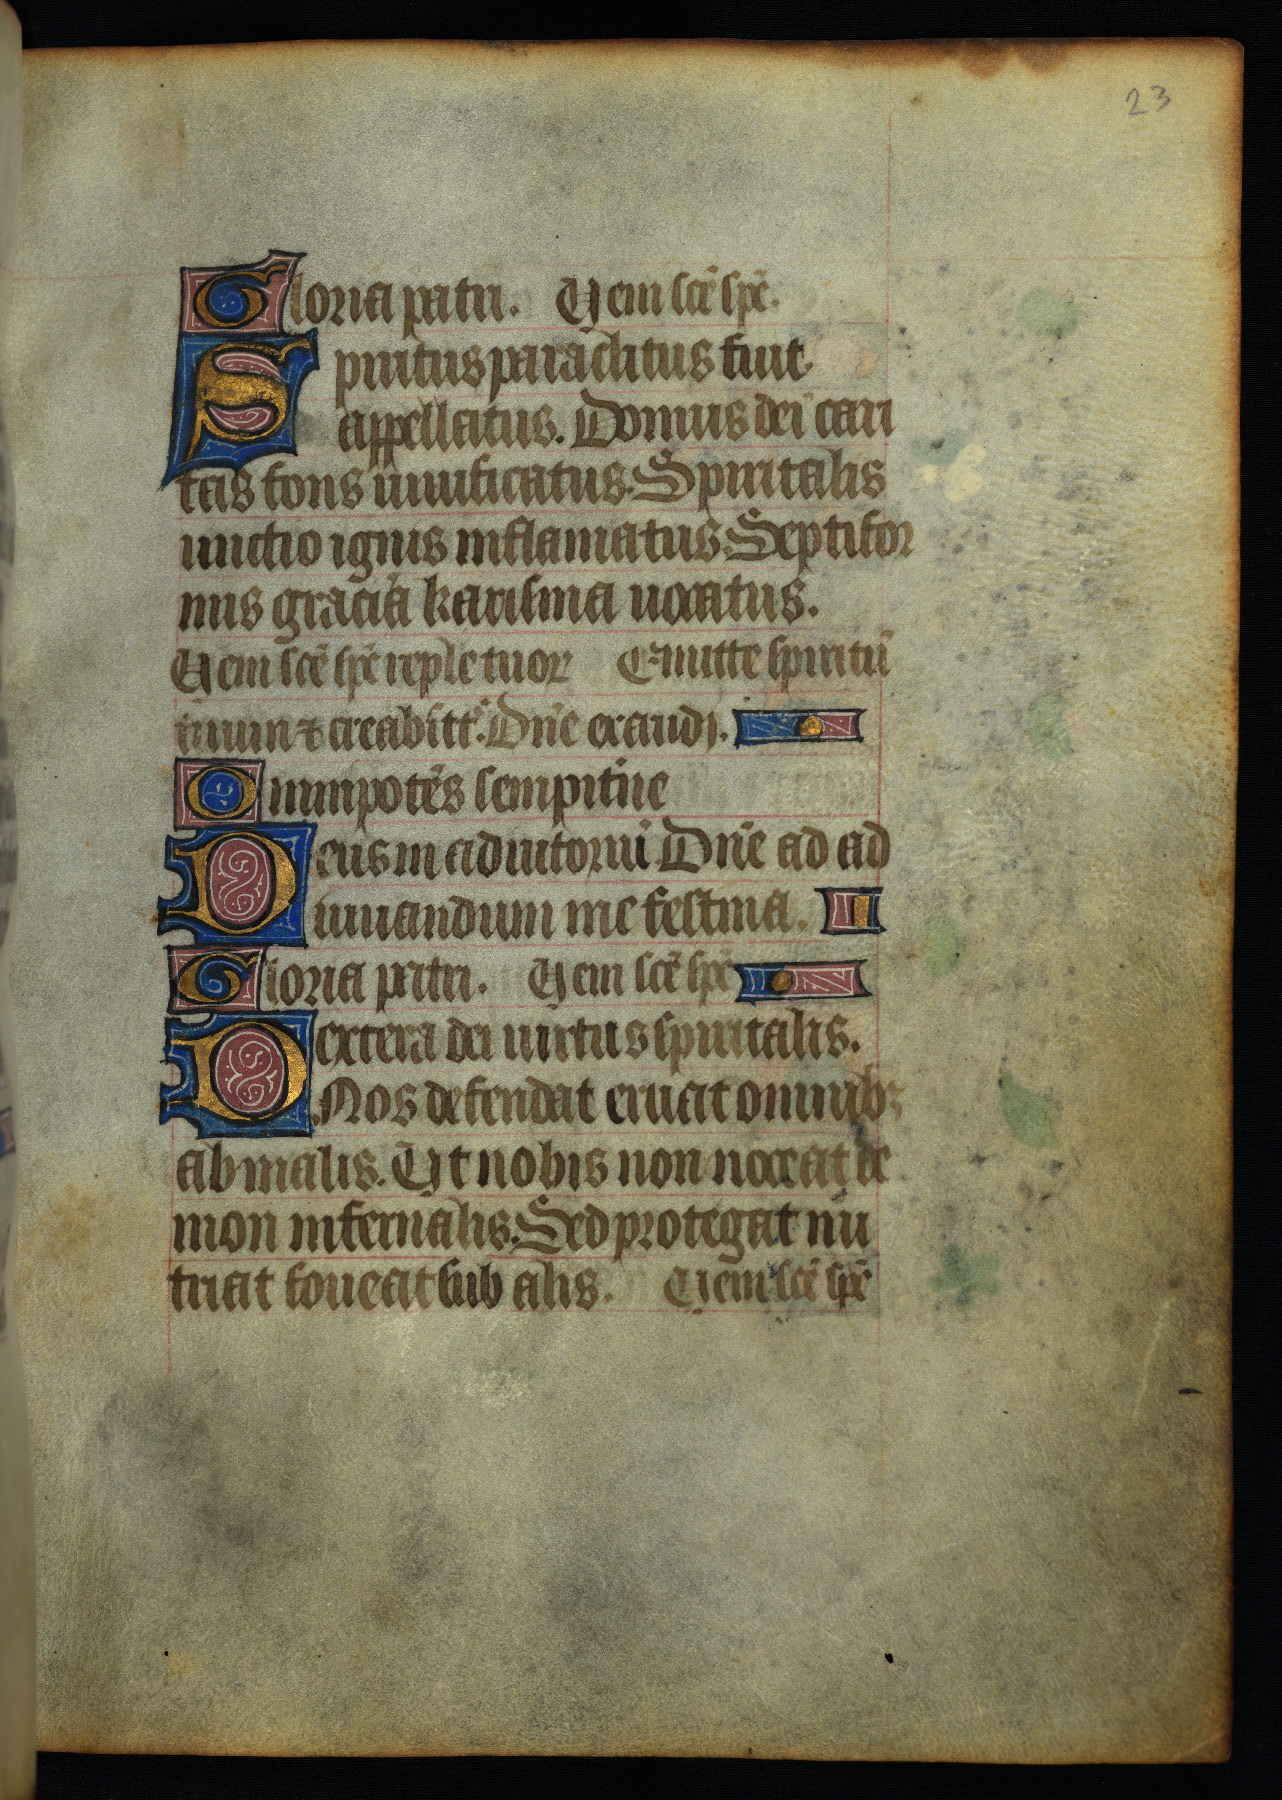 23
Gloria patri. Ueni scē spē.
Spiritus paraclitus fuit
appellatus. Donius dei cari
tas fons uiuificatus. Spiritalis
unctio ignis inflamatus. Septifor
mis gracia karisma uocatus.
Ueni scē spē reple tuor Emitte spiritū
tuum ⁊ creabūtʳ. Dn̄e exaudi.
Omnipotēs sempit̄ne
Deus in adiutoriū. Dn̄e ad ad
iuuandum me festina.
Gloria patri. Ueni scē spē
Dextera dei uirtus spiritalis.
Nos defendat eruat omnibꝫ
ab malis. Ut nobis non noceat de
mon infernalis. Sed protegat nu
triat foueat sub alis. Ueni scē spē